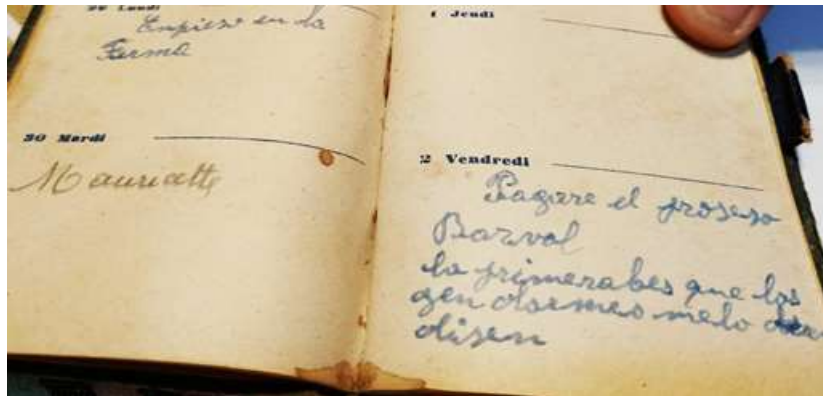 29 Lundi
Empiezo en la
Ferma
30 Mardi
Mauriatte
1 Jeudi
2 Vendredi
Pagare el proseso
Barval
la primerabes que los
gen darmes melo
disen